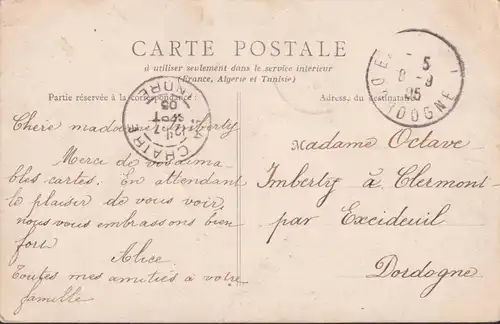 CARTE POSTALE
à utiliser seulement dans le service intérieur
(France, Algérie et Tunisie)
Partie réservée à la correspondance
Adresse du destinataire
Chère madame Imberty
Merci de vos aima-
bles cartes. En attendant
le plaisir de vous voir,
nous vous embrassons bien
fort
Alice
Toutes mes amitiés à votre
famille
Madame Octave
Imberty à Clermont
par Excideuil
Dordogne
CHATRE
INDRE
SEPT
05
5
9
05
DOGNE